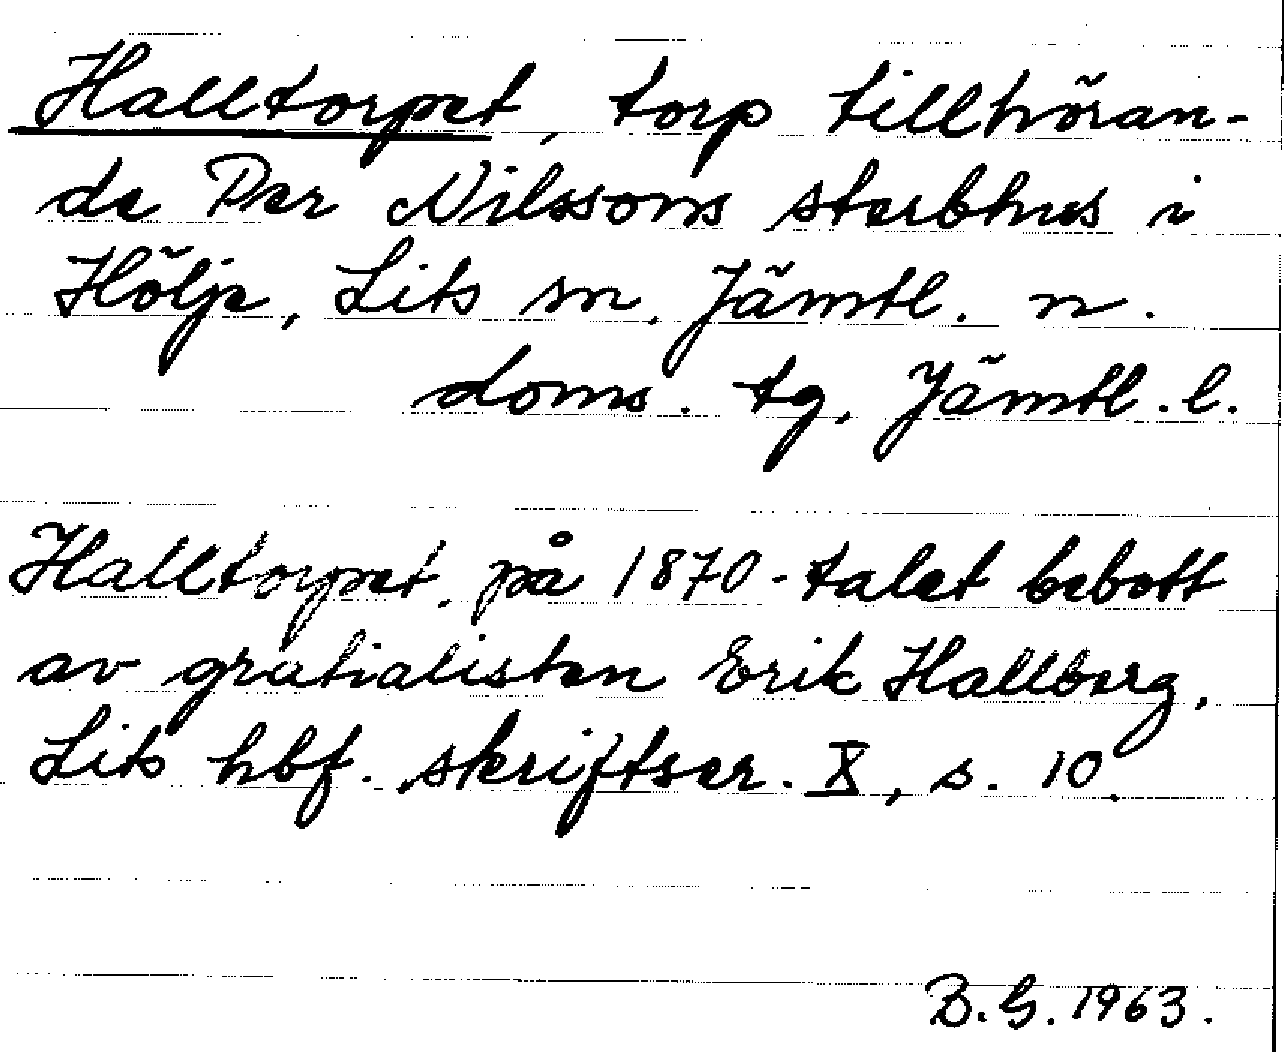 Halltorpet, torp tillhöran-
de Per Nilssons sterbhus i
Hölje, Lits sn. Jämtl. n.
doms. tg, Jämtl. l.
Halltorpet. på 1870-talet bebott
av gratialisten Erik Hallberg,
Lits hbf. skriftser. X, s. 10.
B.G. 1963.